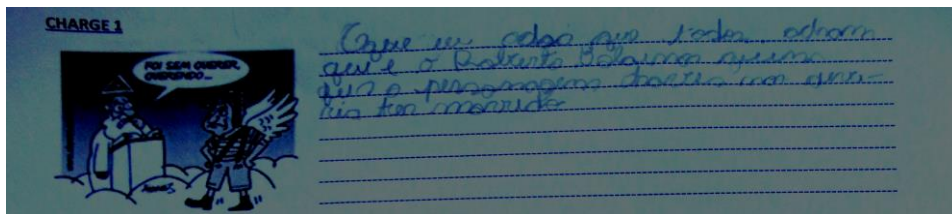 CHARGE 1
FOI SEM QUERER,
QUERENDO...
que eu acho que todos acham
que é o Roberto Bolaños
que o personagem chaves não
ria ter morrido